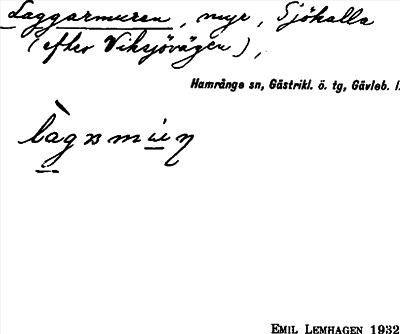 Laggarmuren, myr, Sjökalla
(efter Viksjövägen),
Hamrånge sn, Gästrikl. ö. tg, Gävleb. l.
EMIL LEMHAGEN 1932